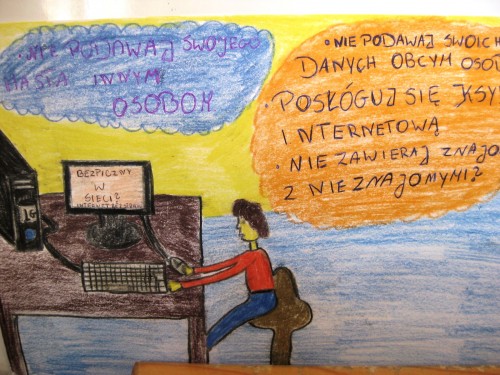 • NIE PODAWAJ SWOJEGO
HASŁA INNYM
OSOBOM
• NIE PODAWAJ SWOICH
DANYCH OBCYM
• POSŁÓGUJ SIĘ
INTERNETOWĄ
• NIE ZAWIERAJ
Z NIEZNAJOMYMI?
BEZPIECZNY
W
SIECI?
LG